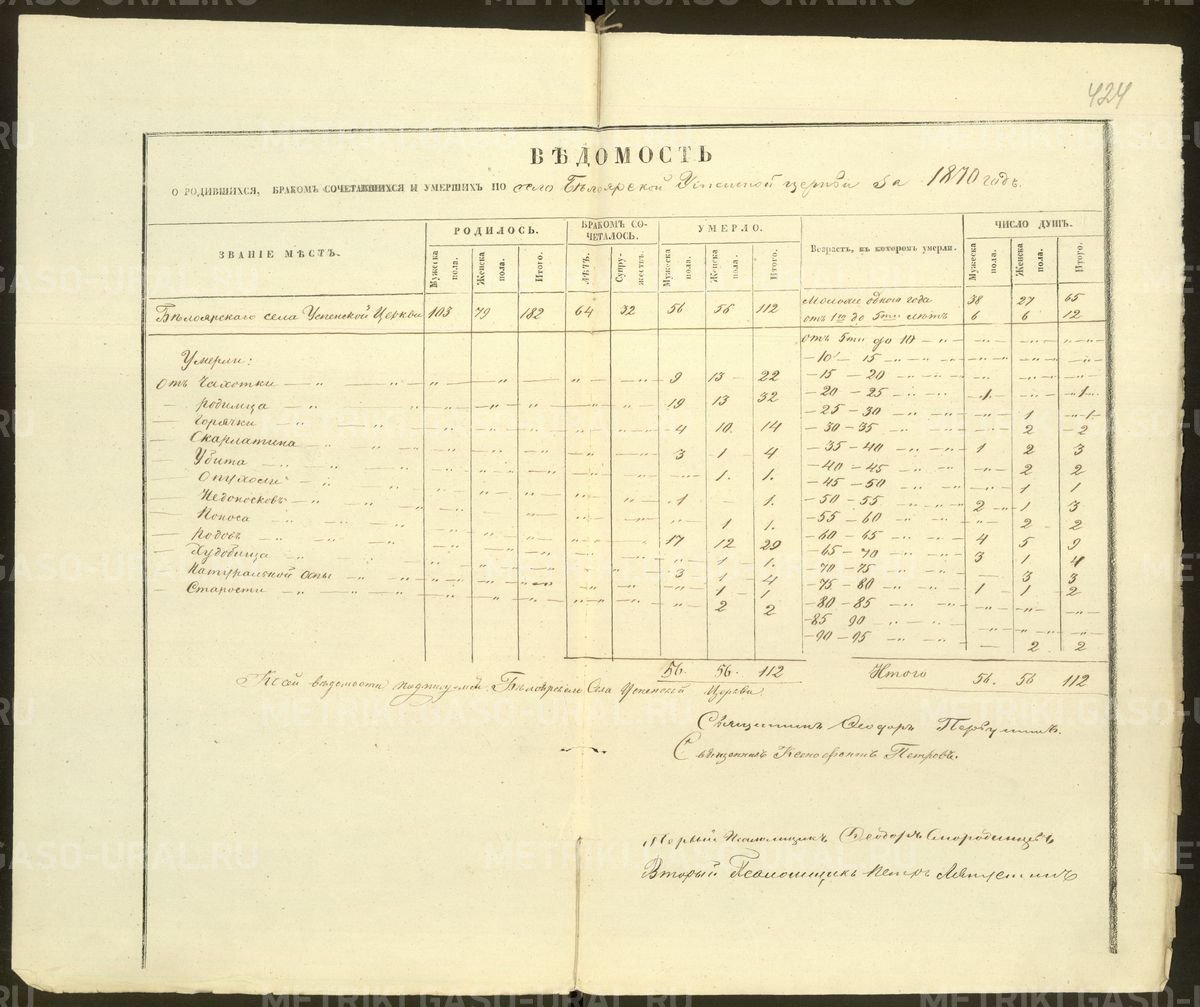 424
ВѢДОМОСТЬ
О РОДИВШИХСЯ, БРАКОМЪ СОЧЕТАВШИХСЯ И УМЕРШИХЪ ПО село Бѣлоярской Успенской церкви за 1870 годъ.
ЗВАНІЕ МѢСТЪ. РОДИЛОСЬ. БРАКОМЪ СОЧЕТАЛОСЬ. УМЕРЛО. Возрастъ, въ которомъ умерли. ЧИСЛО ДУШЪ.
Мужеска пола. Женска пола. Итого. ЛѢТЪ. Супружествъ. Мужеска пола. Женска пола. Итого. Мужеска пола. Женска пола. Итого.
Бѣлоярскаго села Успенской Церкви 103 79 182 64 32 56 56 112 Моложе одного года 38 27 65
отъ 1го до 5ти лѣтъ 6 6 12
отъ 5ти до 10 — „ — „ — „ — „
Умерли: — 10 — 15 — „ — „ — „
Отъ Чахотки — „ — „ 9 13 22 — 15 — 20 — „ — „ — „
— родимца — „ — „ 19 13 32 — 20 — 25 — „ 1 „ 1
— Горячки — „ — „ 4 10 14 — 25 — 30 — „ „ 1 1
— Скарлатина — „ — „ 3 1 4 — 30 — 35 — „ „ 2 2
— Убита — „ — „ „ 1. 1. — 35 — 40 — „ 1 2 3
— Опухоли — „ — „ — 40 — 45 — „ „ 2 2
— Недоносковъ — „ 1 „ 1. — 45 — 50 — „ „ 1 1
— Поноса — „ — „ „ 1 1. — 50 — 55 — „ 2 1 3
— Родовъ — „ — „ 17 12 29 — 55 — 60 — „ „ 2 2
— Худобища — „ „ 1 1. — 60 — 65 — „ 4 5 9
— Натуральной оспы — „ 3 1 4 — 65 — 70 — „ 3 1 4
— Старости — „ — „ „ 1 1 — 70 — 75 — „ „ 3 3
„ 2 2 — 75 — 80 — „ 1 1 2
— 80 — 85 — „ — „ — „
— 85 90 — „ — „ — „
— 90 — 95 — „ „ 2 2
56. 56. 112 Итого 56. 56 112
Къ сей вѣдомости подписуемся Бѣлоярскаго Села Успенской Церкви
Священникъ Ѳеодоръ
Священникъ Ксенофонтъ Петровъ.
Первый Псаломщикъ Ѳеодоръ Смородинцевъ
Второй Псаломщикъ Петръ